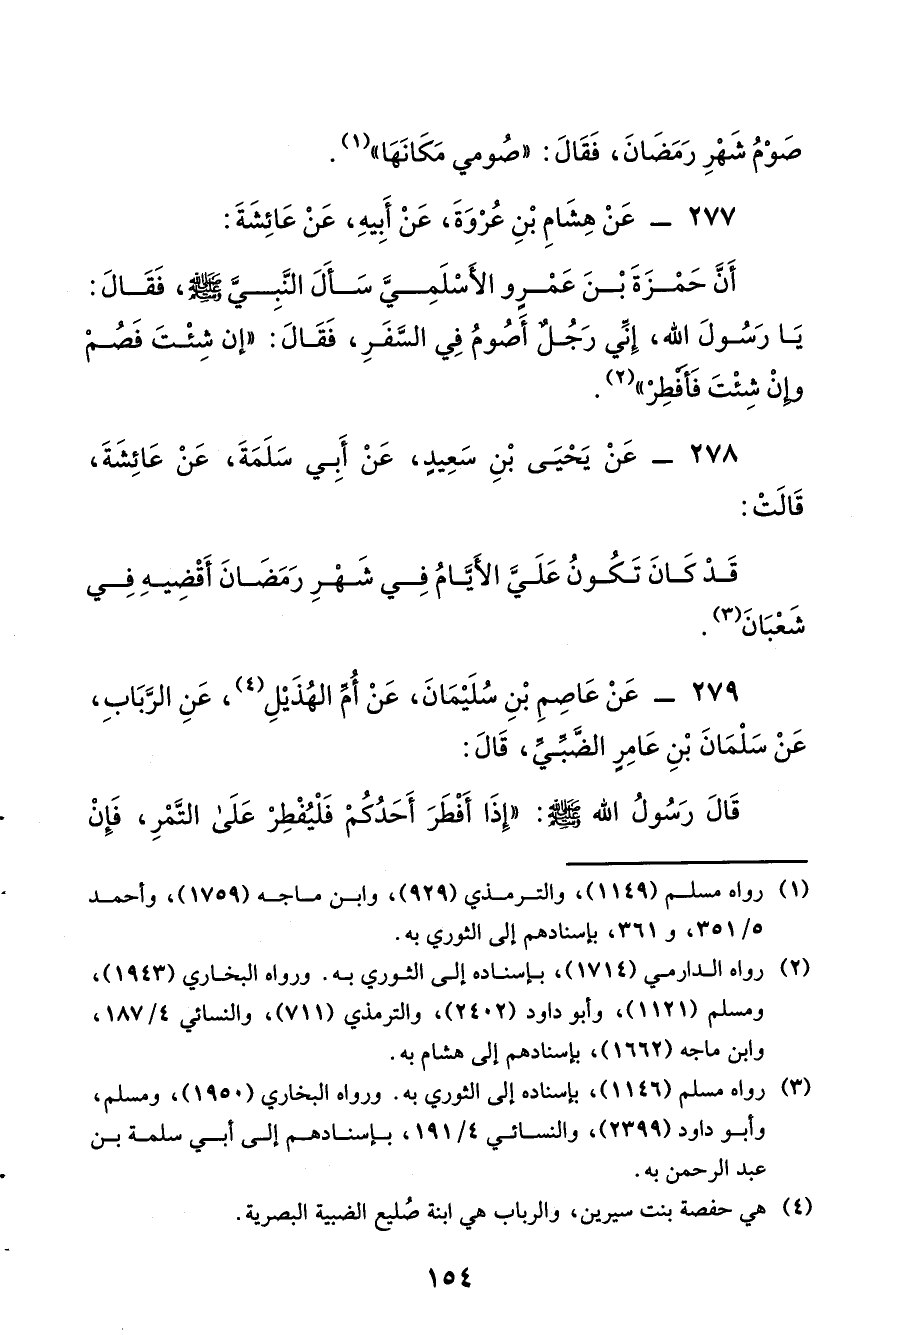 صَوْمُ شَهْرِ رَمَضَانَ، فَقَالَ: «صُومي مَكَانَهَا»(١).
٢٧٧ ـ عَنْ هِشَامِ بْنِ عُرْوَةَ، عَنْ أَبِيهِ، عَنْ عَائِشَةَ:
أَنَّ حَمْزَةَ بْنَ عَمْرٍو الأَسْلَمِيَّ سَأَلَ النَّبِيَّ ﷺ، فَقَالَ:
يَا رَسُولَ الله، إِنِّي رَجُلٌ أَصُومُ فِي السَّفَرِ، فَقَالَ: «إن شئْتَ فَصُمْ
وإِنْ شِئْتَ فَأَفْطِرْ»(٢).
٢٧٨ ـ عَنْ يَحْيَى بْنِ سَعِيدٍ، عَنْ أَبِي سَلَمَةَ، عَنْ عَائِشَةَ،
قَالَتْ:
قَدْ كَانَ تَكُونُ عَلَيَّ الأَيَّامُ فِي شَهْرِ رَمَضَانَ أَقْضِيهِ فِي
شَعْبَانَ(٣).
٢٧٩ ـ عَنْ عَاصِمِ بْنِ سُلَيْمَانَ، عَنْ أُمِّ الهُذَيْلِ(٤)، عَنِ الرَّبَابِ،
عَنْ سَلْمَانَ بْنِ عَامِرٍ الضَّبِّيِّ، قَالَ:
قَالَ رَسُولُ الله ﷺ: «إِذَا أَفْطَرَ أَحَدُكُمْ فَلْيُفْطِرْ عَلَىٰ التَّمْرِ، فَإِنْ
(١) رواه مسلم (١١٤٩)، والترمذي (٩٢٩)، وابن ماجه (١٧٥٩)، وأحمد
٥/ ٣٥١، و ٣٦١، بإسنادهم إلى الثوري به.
(٢) رواه الدارمي (١٧١٤)، بإسناده إلى الثوري به. ورواه البخاري (١٩٤٣)،
ومسلم (١١٢١)، وأبو داود (٢٤٠٢)، والترمذي (٧١١)، والنسائي ٤/ ١٨٧،
وابن ماجه (١٦٦٢)، بإسنادهم إلى هشام به.
(٣) رواه مسلم (١١٤٦)، بإسناده إلى الثوري به. ورواه البخاري (١٩٥٠)، ومسلم،
وأبو داود (٢٣٩٩)، والنسائي ٤/ ١٩١، بإسنادهم إلى أبي سلمة بن
عبد الرحمن به.
(٤) هي حفصة بنت سيرين، والرباب هي ابنة صُليع الضبية البصرية.
١٥٤